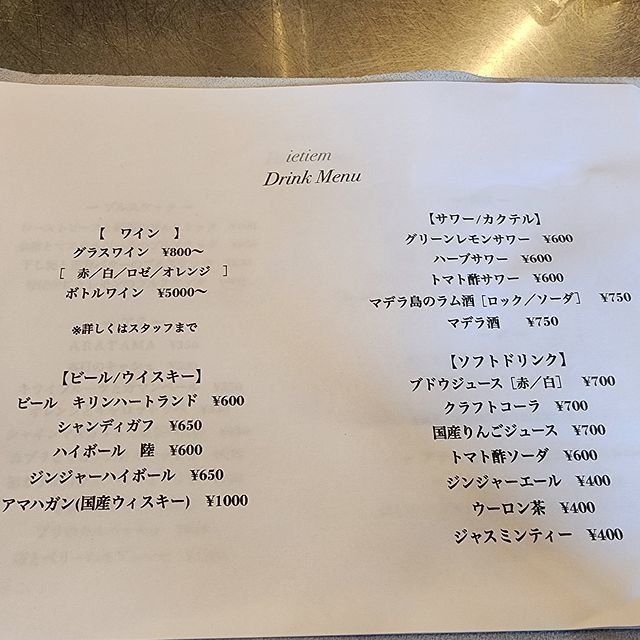 ietiem
Drink Menu
【 ワイン 】
グラスワイン ¥800〜
［ 赤／白／ロゼ／オレンジ ］
ボトルワイン ¥5000〜
※詳しくはスタッフまで
【ビール/ウイスキー】
ビール キリンハートランド ¥600
シャンディガフ ¥650
ハイボール 陸 ¥600
ジンジャーハイボール ¥650
アマハガン(国産ウィスキー) ¥1000
【サワー/カクテル】
グリーンレモンサワー ¥600
ハーブサワー ¥600
トマト酢サワー ¥600
マデラ島のラム酒［ロック／ソーダ］ ¥750
マデラ酒 ¥750
【ソフトドリンク】
ブドウジュース［赤／白］ ¥700
クラフトコーラ ¥700
国産りんごジュース ¥700
トマト酢ソーダ ¥600
ジンジャーエール ¥400
ウーロン茶 ¥400
ジャスミンティー ¥400